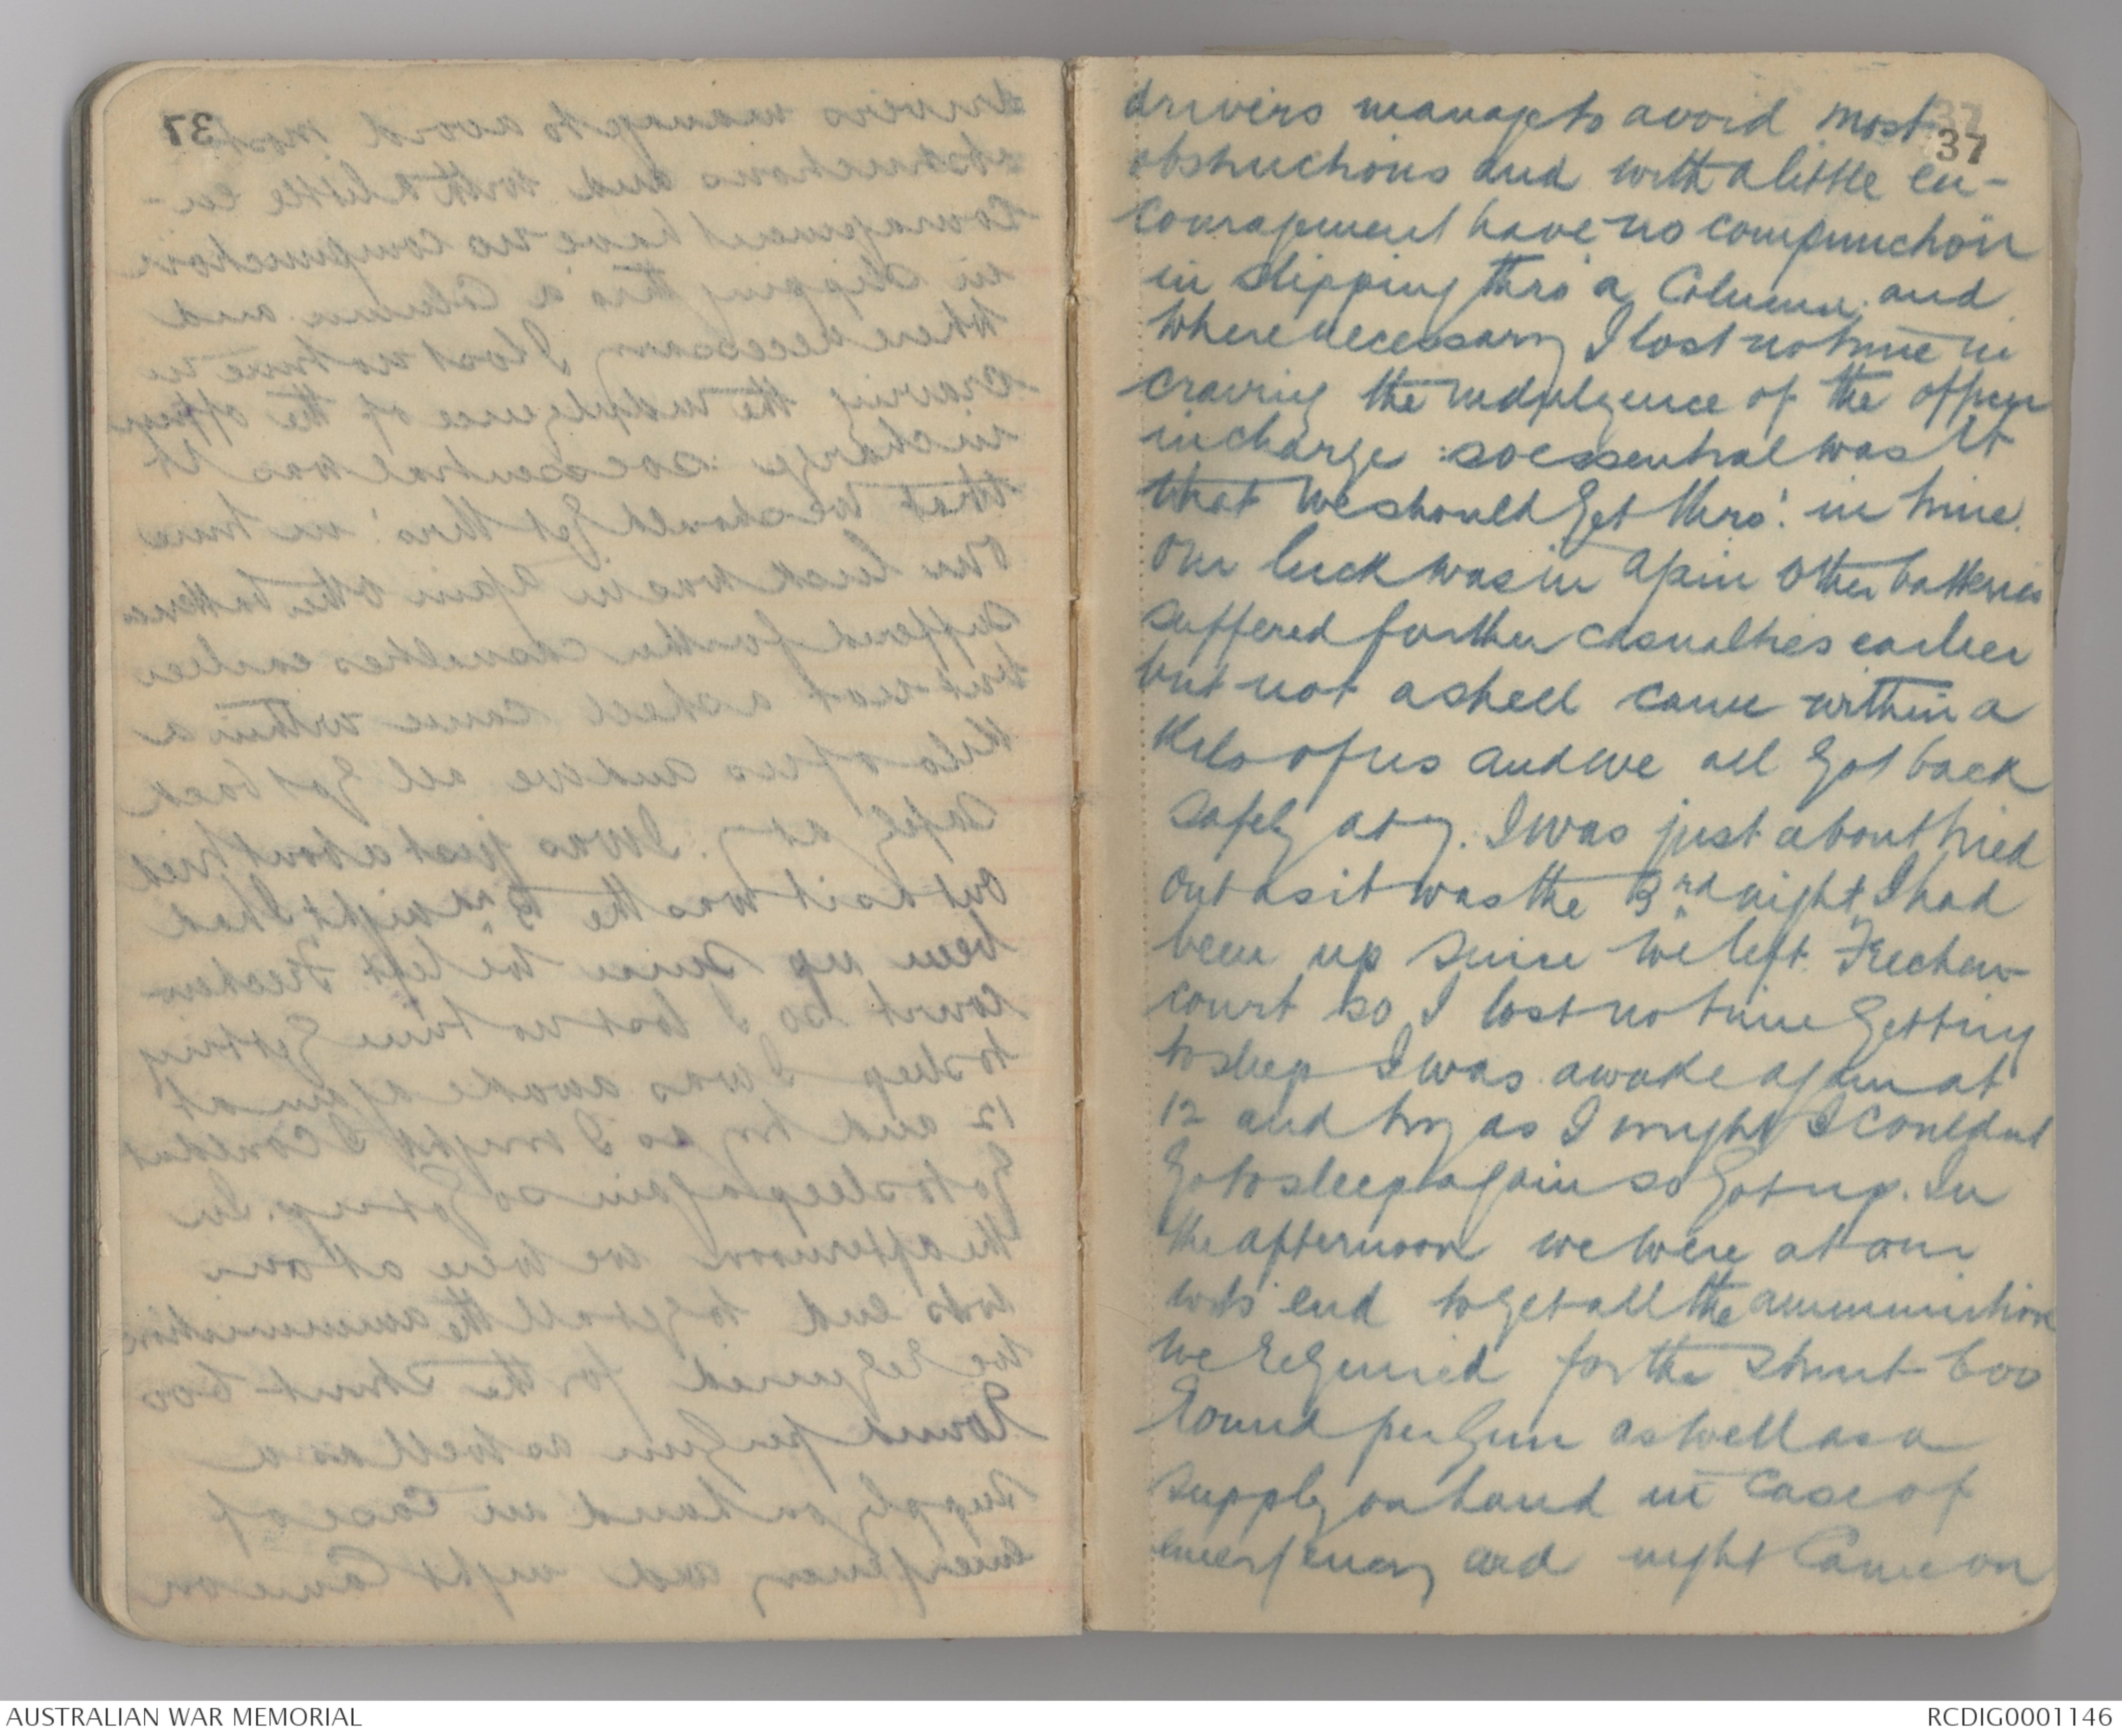 37
drivers manage to avoid most
obstructions and with a little en-
couragement have no compunction
in slipping thro' a Column and
where necessary I lost no time in
craving the indulgence of the officer
in charge : so essential was it
that we should get thro'. in time.
Our luck was in again Other batteries
suffered further casualties earlier
but not a shell came within a
Kilo of us and we all got back
safely at 7. I was just about tired
out as it was the 3rd night I had
been up since we left Frechen-
court so I lost no time getting
to sleep I was awake again at
12 and try as I might I couldnt
go to sleep again so got up. In
the afternoon we were at our
wits' end to get all the ammunition
we required for the stunt 600
Round per gun as well as a
supply on hand in case of
emergency and night Came on
AUSTRALIAN WAR MEMORIAL
RCDIG0001146